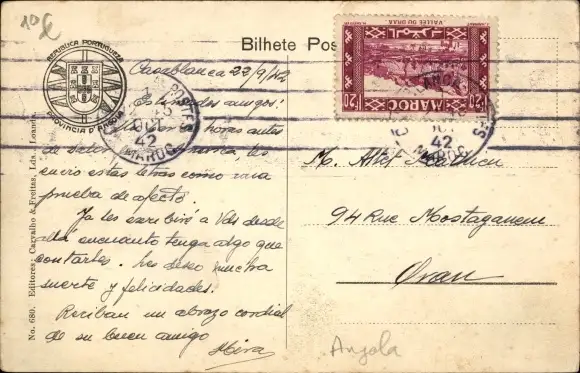 10€
Bilhete Pos
REPUBLICA PORTUGUEZA
PROVINCIA D'ANGOLA
VALLÉE DU DRAA
MAROC
POSTES
1F20
1F20
POSTES
OCT
42
MAROC
42
MAROC
Casablanca 22/9/42
Estimados amigos:
horas antes
de
les
envio estas letras como una
prueba de afecto.
Ya les escribiré a Vds desde
allá en cuanto tenga algo que
contarles. Les deseo mucha
suerte y felicidades.
Reciban un abrazo cordial
de su buen amigo
M. Albert
94 Rue Mostaganem
Oran
Angola
No. 680. Editores: Carvalho & Freitas, Lda., Loanda